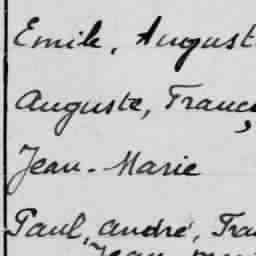 Emile, August
Auguste, Franc
Jean-Marie
Paul, André, Fra
Jean